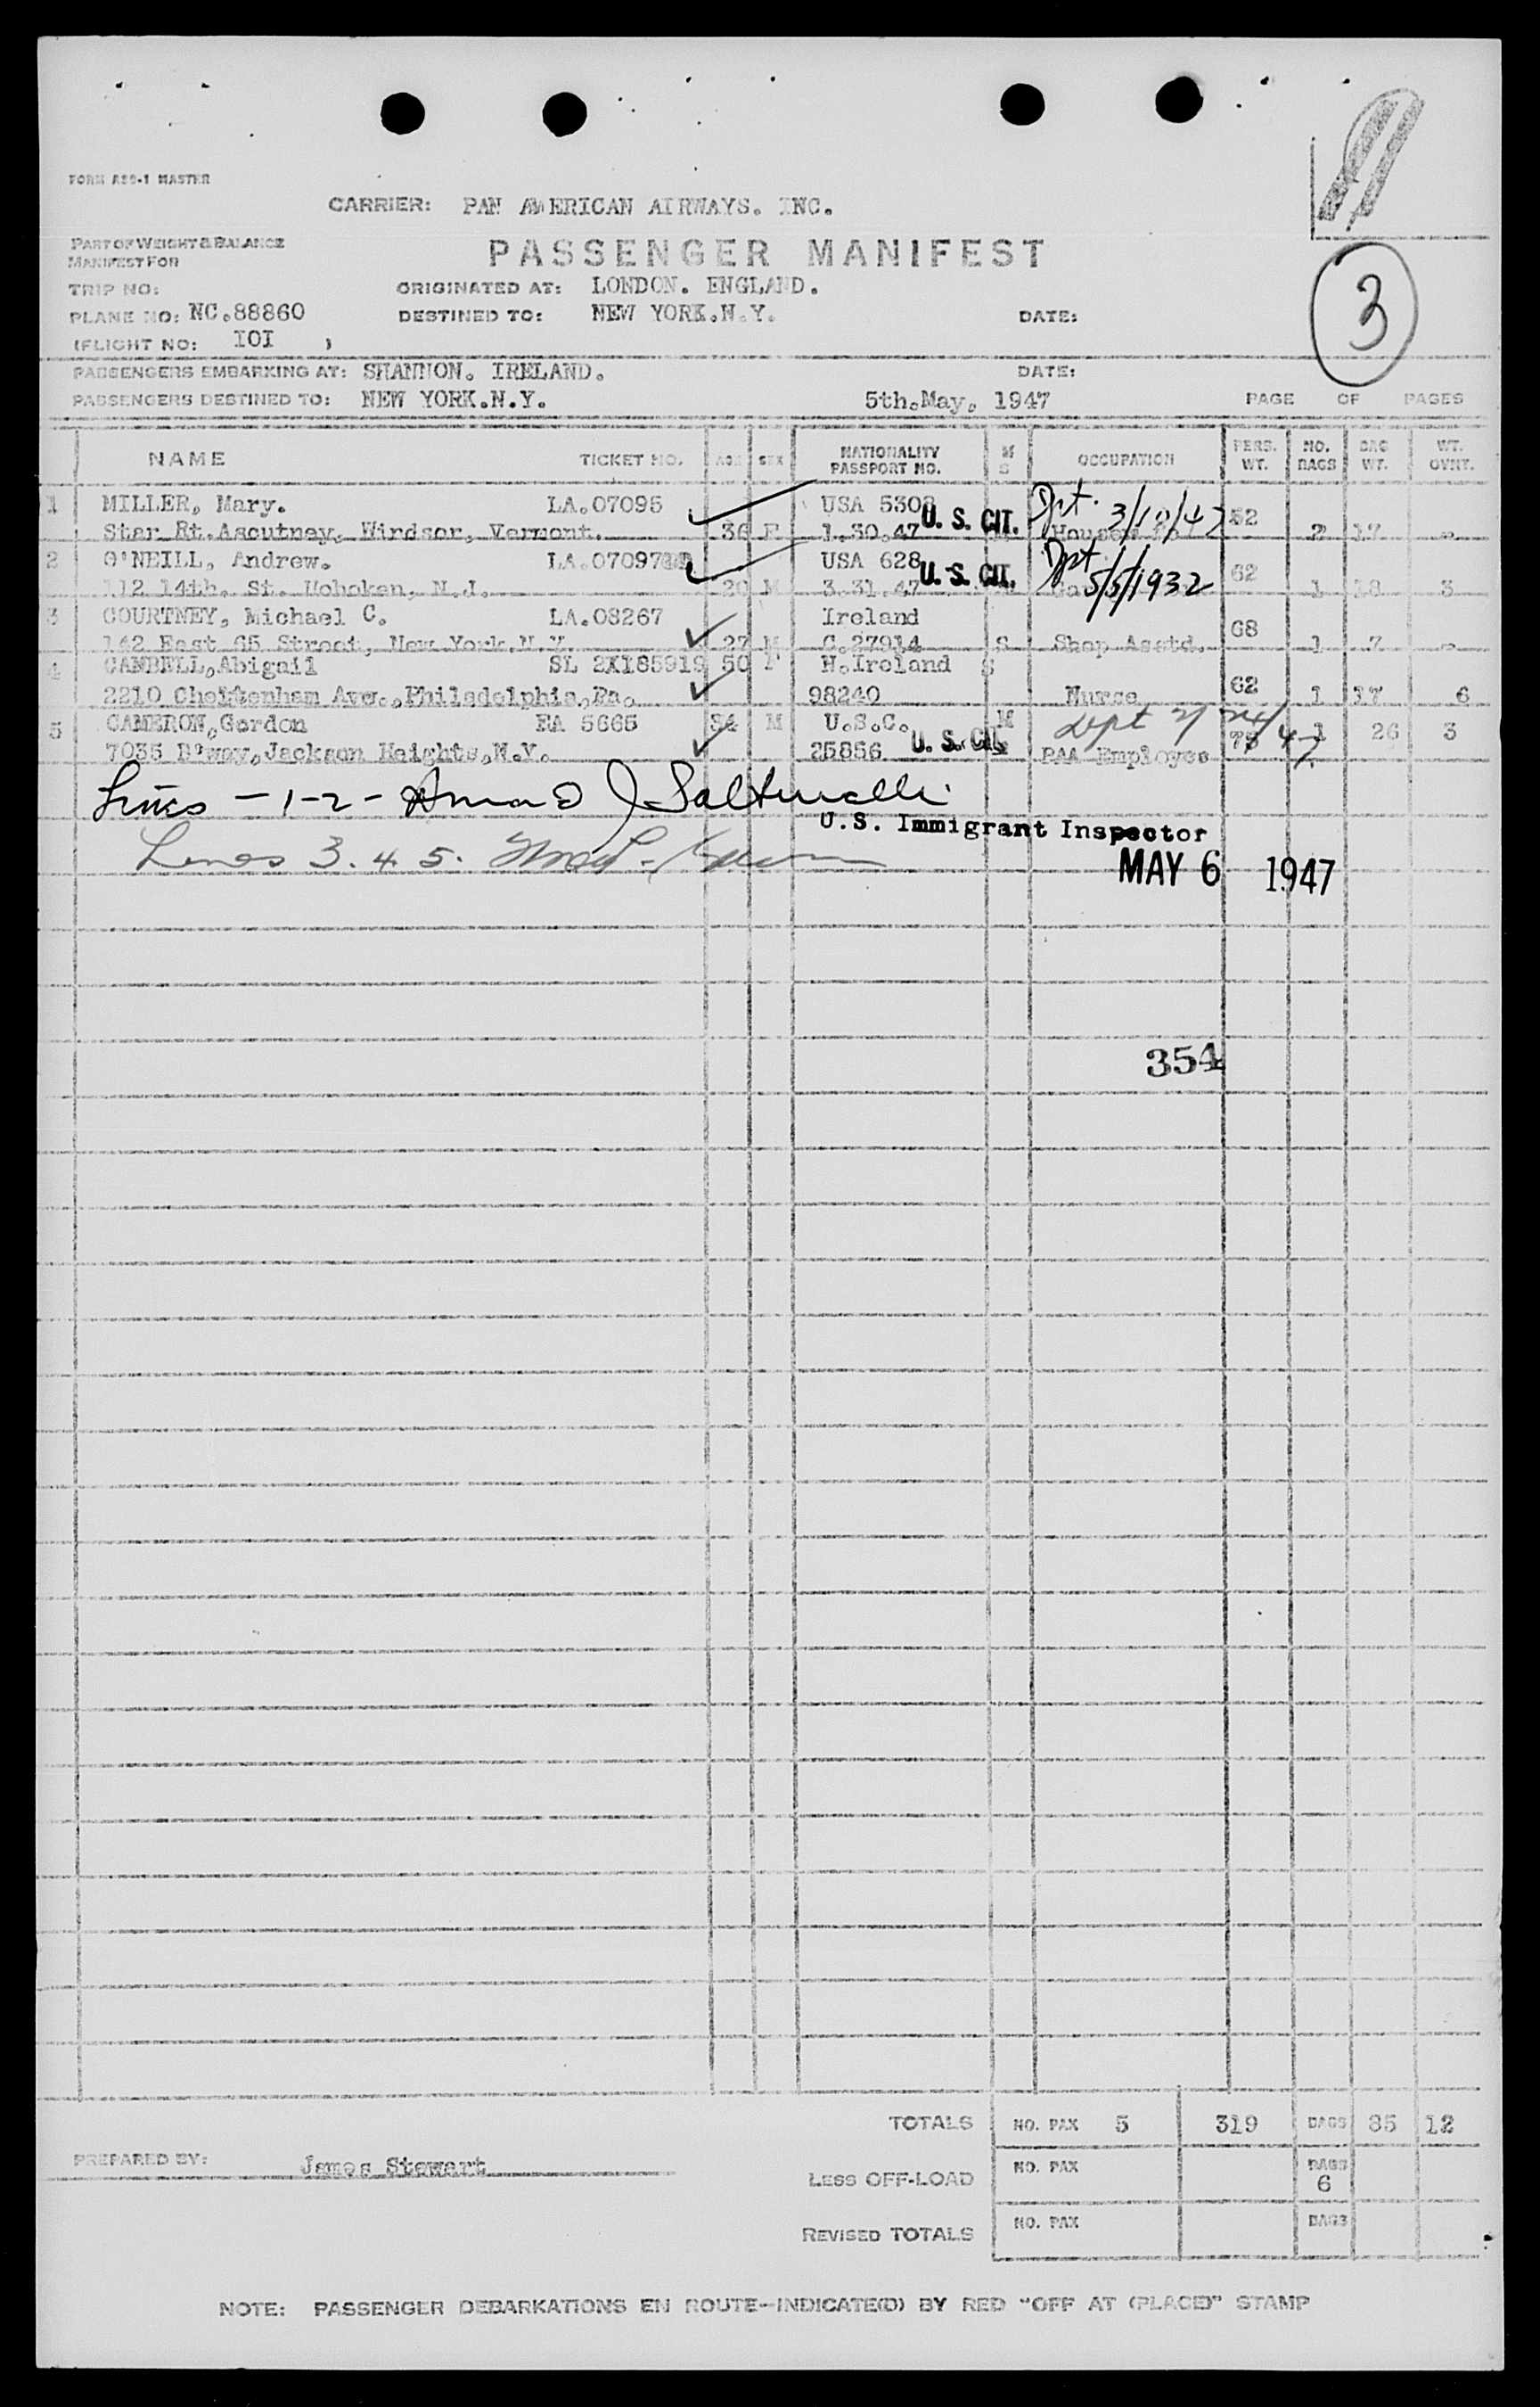 FORM ASS-1 MASTER
CARRIER: PAN AMERICAN AIRWAYS. INC.
PART OF WEIGHT & BALANCE
MANIFEST FOR
PASSENGER MANIFEST
TRIP NO: ORIGINATED AT: LONDON. ENGLAND.
PLANE NO: NC.88860 DESTINED TO: NEW YORK.N.Y. DATE:
(FLIGHT NO: IOI )
3
PASSENGERS EMBARKING AT: SHANNON. IRELAND. DATE:
PASSENGERS DESTINED TO: NEW YORK.N.Y. 5th.May. 1947 PAGE OF PAGES
NAME TICKET NO. AGE SEX NATIONALITY PASSPORT NO. M S OCCUPATION PERS. WT. NO. BAGS BAG WT. WT. OVHT.
1 MILLER, Mary. LA.07095 USA 5308 U. S. CIT. Dpt. 3/10/47 52
Star Rt.Ascutney, Windsor, Vermont. 36 F 1.30.47 2 17 -
2 O'NEILL, Andrew. LA.07097 USA 628 U. S. CIT. Dpt 5/5/1932 62
112 14th. St. Hoboken, N.J. 20 M 3.31.47 1 18 3
3 COURTNEY, Michael C. LA.08267 Ireland 68
142 East 65 Street, New York.N.Y. 27 M C.27914 S Shop Asstd. 1 7 -
4 CAMBELL,Abigail SL 2XI85919 50 F N.Ireland S
2210 Cheltenham Ave.,Philadelphia,Pa. 98240 Nurse 62 1 17 6
5 CAMERON,Gordon EA 5665 34 M U.S.C. M Dept 1 26 3
7035 B'way,Jackson Heights,N.Y. 25856 U. S. Cit. PAA Employee
Lines - 1-2 -
U.S. Immigrant Inspector
Lines 3. 4. 5.
MAY 6 1947
354
TOTALS NO. PAX 5 319 BAGS 85 12
PREPARED BY: James Stewart
LESS OFF-LOAD NO. PAX BAGS 6
REVISED TOTALS NO. PAX BAGS
NOTE: PASSENGER DEBARKATIONS EN ROUTE—INDICATE(D) BY RED "OFF AT (PLACE)" STAMP